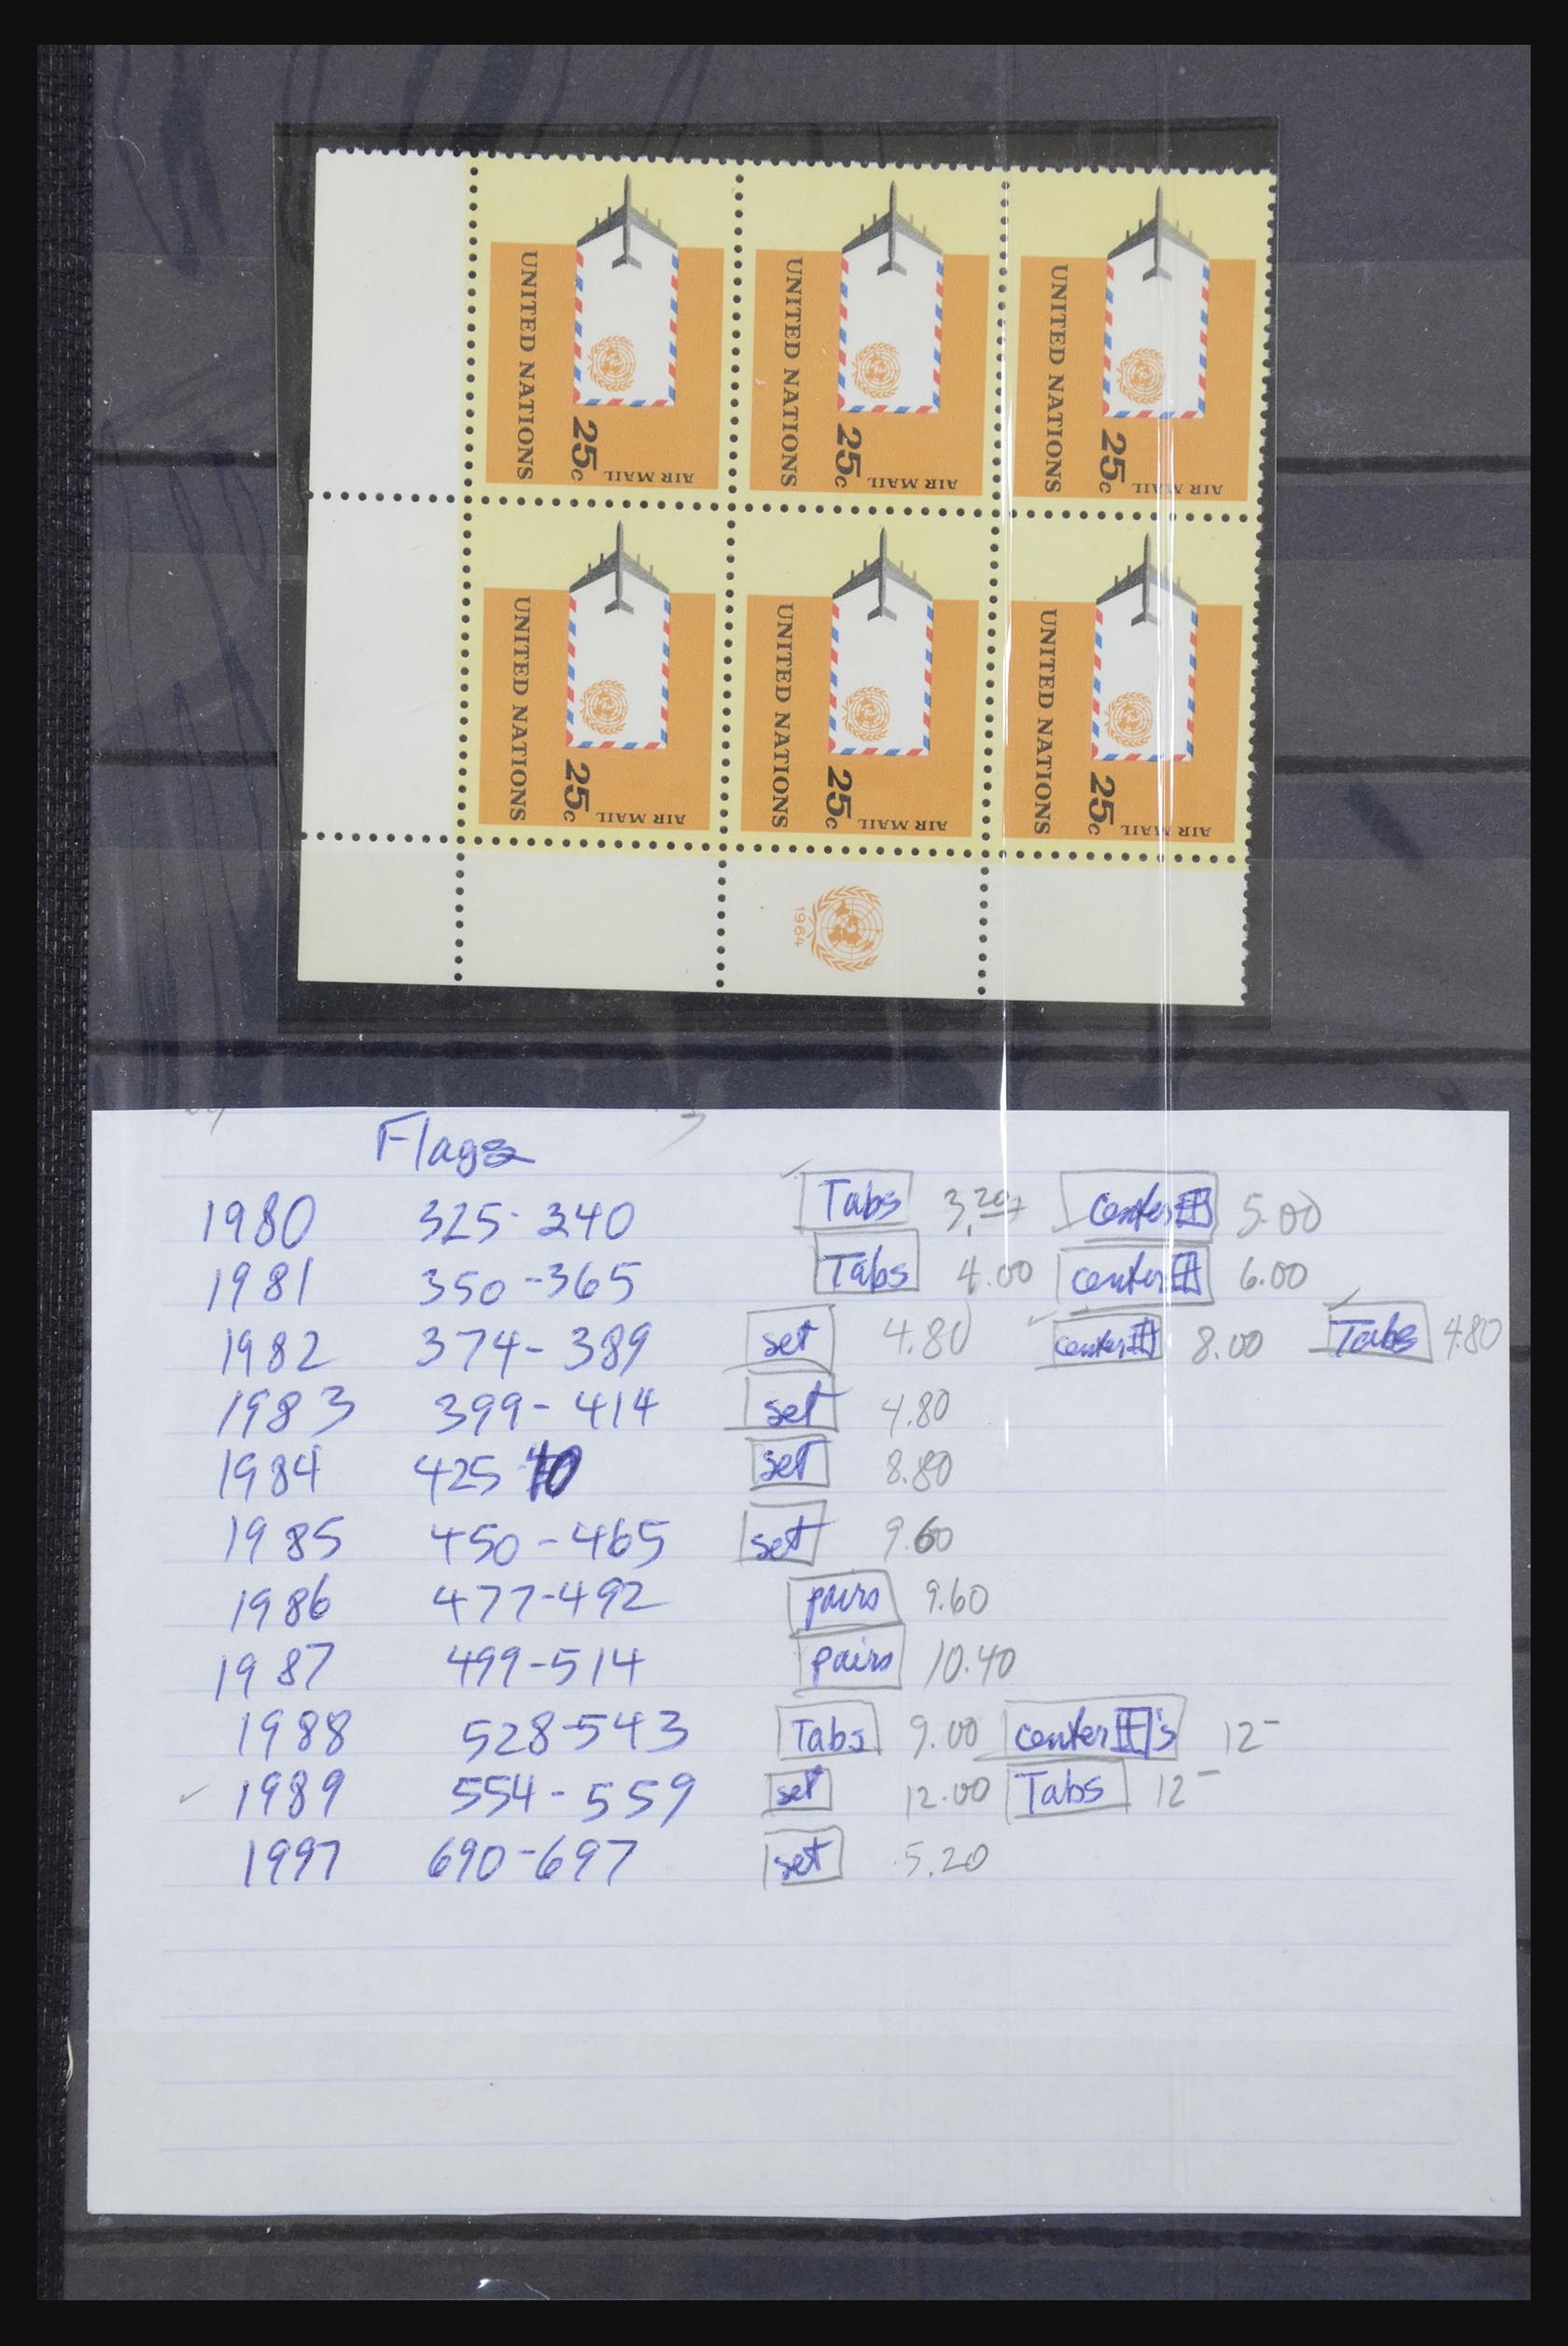 UNITED NATIONS 25c AIR MAIL
UNITED NATIONS 25c AIR MAIL
UNITED NATIONS 25c AIR MAIL
UNITED NATIONS 25c AIR MAIL
UNITED NATIONS 25c AIR MAIL
UNITED NATIONS 25c AIR MAIL
1964
Flags
1980 325-340 Tabs 3.20 center 5.00
1981 350-365 Tabs 4.00 center 6.00
1982 374-389 set 4.80 center 8.00 Tabs 4.80
1983 399-414 set 4.80
1984 425 40 set 8.80
1985 450-465 set 9.60
1986 477-492 pairs 9.60
1987 499-514 pairs 10.40
1988 528-543 Tabs 9.00 center's 12-
1989 554-559 set 12.00 Tabs 12-
1997 690-697 set 5.20